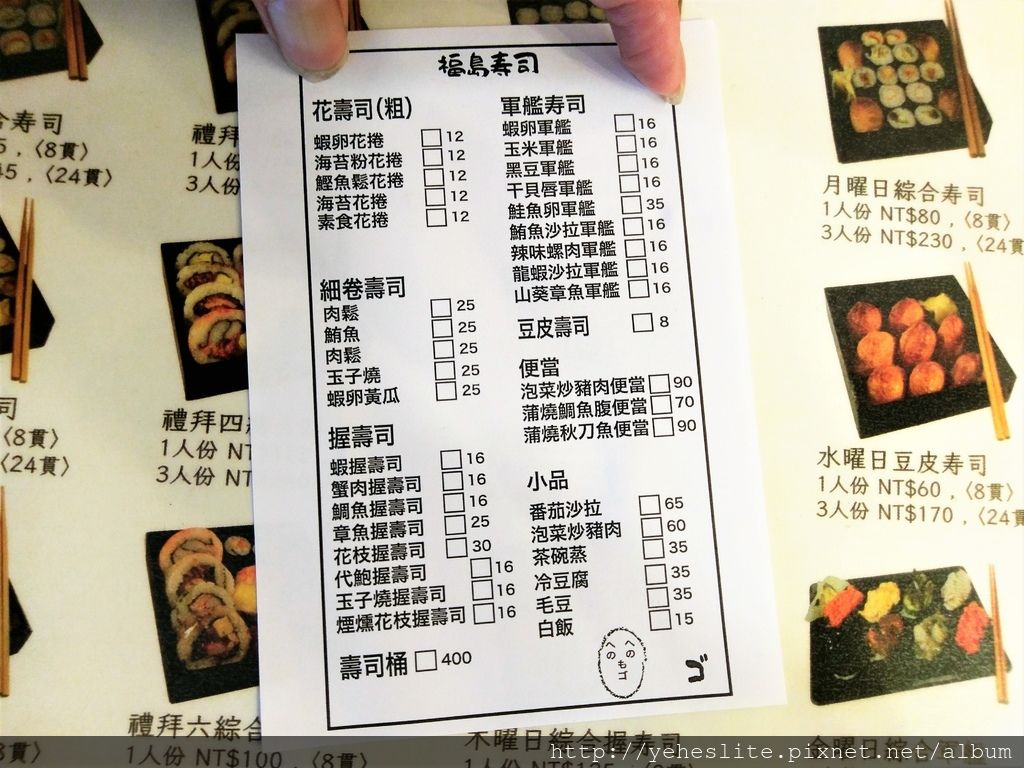 福島寿司
花壽司(粗)
蝦卵花捲 12
海苔粉花捲 12
鰹魚鬆花捲 12
海苔花捲 12
素食花捲 12
細卷壽司
肉鬆 25
鮪魚 25
肉鬆 25
玉子燒 25
蝦卵黃瓜 25
握壽司
蝦握壽司 16
蟹肉握壽司 16
鯛魚握壽司 16
章魚握壽司 25
花枝握壽司 30
代鮑握壽司 16
玉子燒握壽司 16
煙燻花枝握壽司 16
壽司桶 400
軍艦寿司
蝦卵軍艦 16
玉米軍艦 16
黑豆軍艦 16
干貝唇軍艦 16
鮭魚卵軍艦 35
鮪魚沙拉軍艦 16
辣味螺肉軍艦 16
龍蝦沙拉軍艦 16
山葵章魚軍艦 16
豆皮壽司 8
便當
泡菜炒豬肉便當 90
蒲燒鯛魚腹便當 70
蒲燒秋刀魚便當 90
小品
番茄沙拉 65
泡菜炒豬肉 60
茶碗蒸 35
冷豆腐 35
毛豆 35
白飯 15
へのへの
も
ゴ
ゴ
合寿司
5，〈8貫〉
45，〈24貫〉
司
〈8貫〉
〈24貫〉
8貫〉
禮拜
1人份
3人份
禮拜四
1人份 NT
3人份 NT
禮拜六綜合
1人份 NT$100，〈8貫〉
木曜日綜合握寿司
月曜日綜合寿司
1人份 NT$80，〈8貫〉
3人份 NT$230，〈24貫
水曜日豆皮寿司
1人份 NT$60，〈8貫〉
3人份 NT$170，〈24貫
http://yeheslite.pixnet.net/album